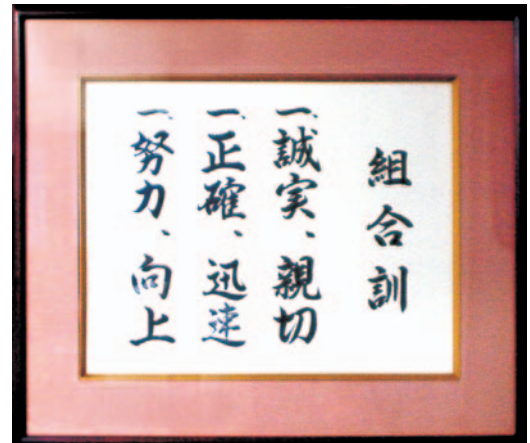 組合訓
一、誠実、親切
一、正確、迅速
一、努力、向上